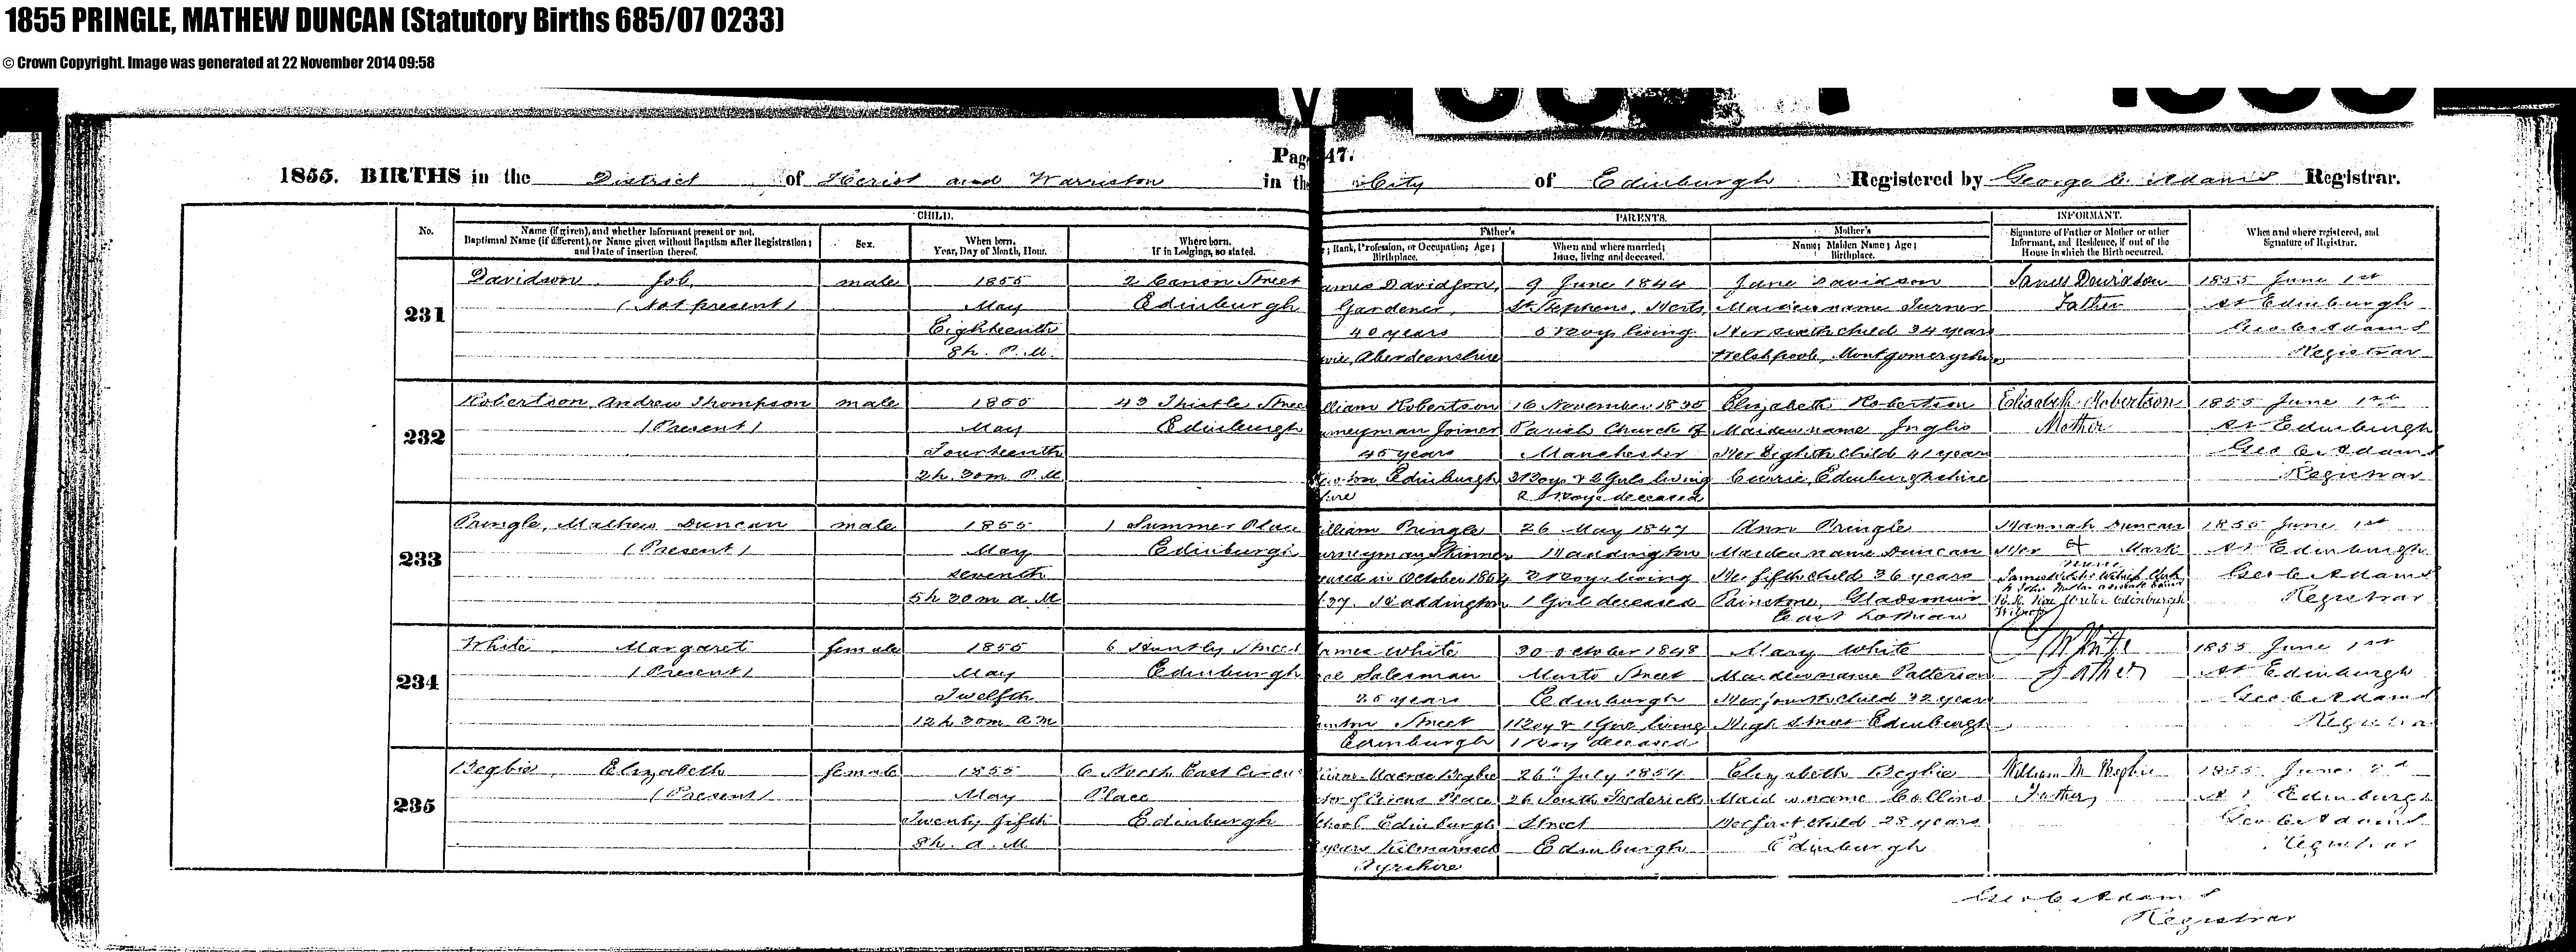 1855 PRINGLE, MATHEW DUNCAN (Statutory Births 685/07 0233)
© Crown Copyright. Image was generated at 22 November 2014 09:58
Pag 47.
1855. BIRTHS in the District of Heriot and Warriston in th City of Edinburgh Registered by George C. Adams Registrar.
No.
CHILD.
Name (if given), and whether Informant present or not.
Baptismal Name (if different), or Name given without Baptism after Registration;
and Date of insertion thereof.
Sex.
When born.
Year, Day of Month, Hour.
Where born.
If in Lodgings, so stated.
PARENTS.
Father's
; Rank, Profession, or Occupation; Age;
Birthplace.
When and where married;
Issue, living and deceased.
Mother's
Name; Maiden Name; Age;
Birthplace.
INFORMANT.
Signature of Father or Mother or other
Informant, and Residence, if out of the
House in which the Birth occurred.
When and where registered, and
Signature of Registrar.
231
Davidson Job
(Not present)
male
1855
May
Eighteenth
8h. P.M.
2 Canon Street
Edinburgh
ames Davidson,
Gardener,
40 years
Aberdeenshire
9 June 1844
St Stephens, Herts
5 Boys living
Jane Davidson
Maiden name Turner
Her sixth child 34 years
Welshpool, Montgomeryshire
James Davidson
Father
1855 June 1st
At Edinburgh
Geo C Adams
Registrar
232
Robertson Andrew Thompson
(Present)
male
1855
May
Fourteenth
2h. 30m P.M
43 Thistle Street
Edinburgh
lliam Robertson
urneyman Joiner
45 years
Edinburgh
hire
16 November 1835
Parish Church of
Manchester
3 Boys & 2 Girls living
2 Boys deceased
Elizabeth Robertson
Maiden name Inglis
Her Eighth child 41 years
Currie, Edinburghshire
Elizabeth Robertson
Mother
1855 June 1st
At Edinburgh
Geo C Adams
Registrar
233
Pringle, Mathew Duncan
(Present)
male
1855
May
Seventh
5h 30m a.M
1 Summer Place
Edinburgh
illiam Pringle
urneyman Skinner
eased in October 1854
37. Haddington
26 May 1847
Haddington
3 Boys living
1 Girl deceased
Ann Pringle
Maiden name Duncan
Her fifth child 36 years
Penston, Gladsmuir
East Lothian
Hannah Duncan
Her + Mark
Edinburgh
Witness
1855 June 1st
At Edinburgh
Geo C Adams
Registrar
234
White Margaret
(Present)
female
1855
May
Twelfth
12h 30m a.m
6 Huntly Street
Edinburgh
ames White
Salesman
25 years
Street
Edinburgh
30 October 1848
Street
Edinburgh
1 Boy & 1 Girl living
1 Boy deceased
Mary White
Maiden name Patterson
Her fourth child 32 years
High Street Edinburgh
White
Father
1855 June 1st
At Edinburgh
Geo C Adams
Registrar
235
Begbie, Elizabeth
(Present)
female
1855
May
Twenty fifth
8h. a.M
6 North East Circus
Place
Edinburgh
Macrae Begbie
of Circus Place
chool Edinburgh
years Kilmarnock
Ayrshire
26th July 1854
26 South Frederick
Street
Edinburgh
Elizabeth Begbie
Maiden name Collins
Her first child 28 years
Edinburgh
William M Begbie
Father
1855 June 2d
At Edinburgh
Geo C Adams
Registrar
Geo C Adams
Registrar